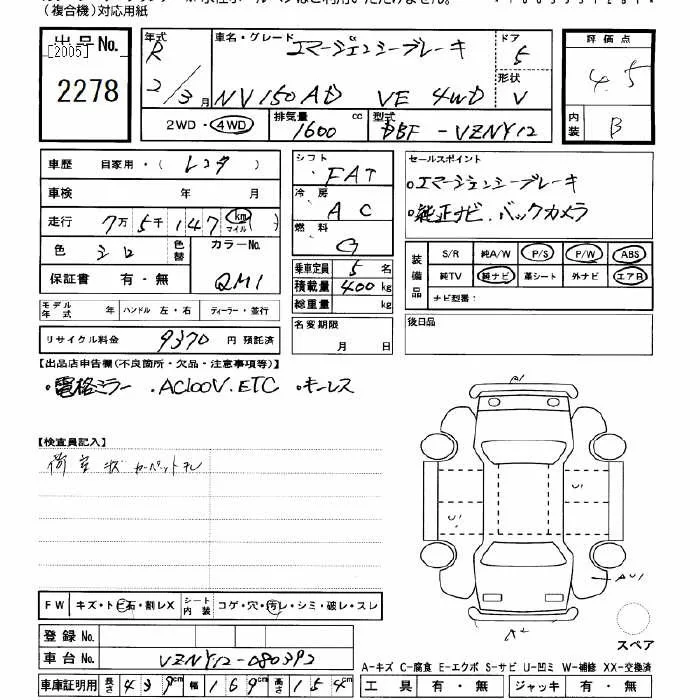 (複合機)対応用紙
出品No. [2005] 2278
年式 R 2/3月
車名・グレード エマージェンシーブレーキ NV150AD VE 4WD
ドア 5
形状 V
2WD・4WD 排気量 1600 cc 型式 DBF-VZNY12
評価点 4.5
内装 B
車歴 自家用・( レンタ )
車検 年 月
走行 7万5千147 km マイル
色 シロ 色替 カラーNo. QM1
保証書 有・無
モデル年式 年 ハンドル 左・右 ディーラー・並行
リサイクル料金 9370 円 預託済
シフト FAT
冷房 AC
燃料 G
乗車定員 5 名
積載量 400 kg
総重量 kg
名変期限 月 日
セールスポイント
・エマージェンシーブレーキ
・純正ナビ.バックカメラ
装備品 S/R 純A/W P/S P/W ABS
純TV 純ナビ 革シート 外ナビ エアB
ナビ型番:
後日品
【出品店申告欄(不良箇所・欠品・注意事項等)】
・電格ミラー .AC100V.ETC ・キーレス
【検査員記入】
荷室状 カーペットヌレ
A1
U1 U1
AU1
A2
スペア
FW キズ・トビ石・割レX シート内装 コゲ・穴・汚レ・シミ・破レ・スレ
登録No.
車台No. VZNY12-080392
A-キズ C-腐食 E-エクボ S-サビ U-凹ミ W-補修 XX-交換済
車庫証明用 長さ 439cm 幅 169cm 高さ 154cm
工具 有・無 ジャッキ 有・無